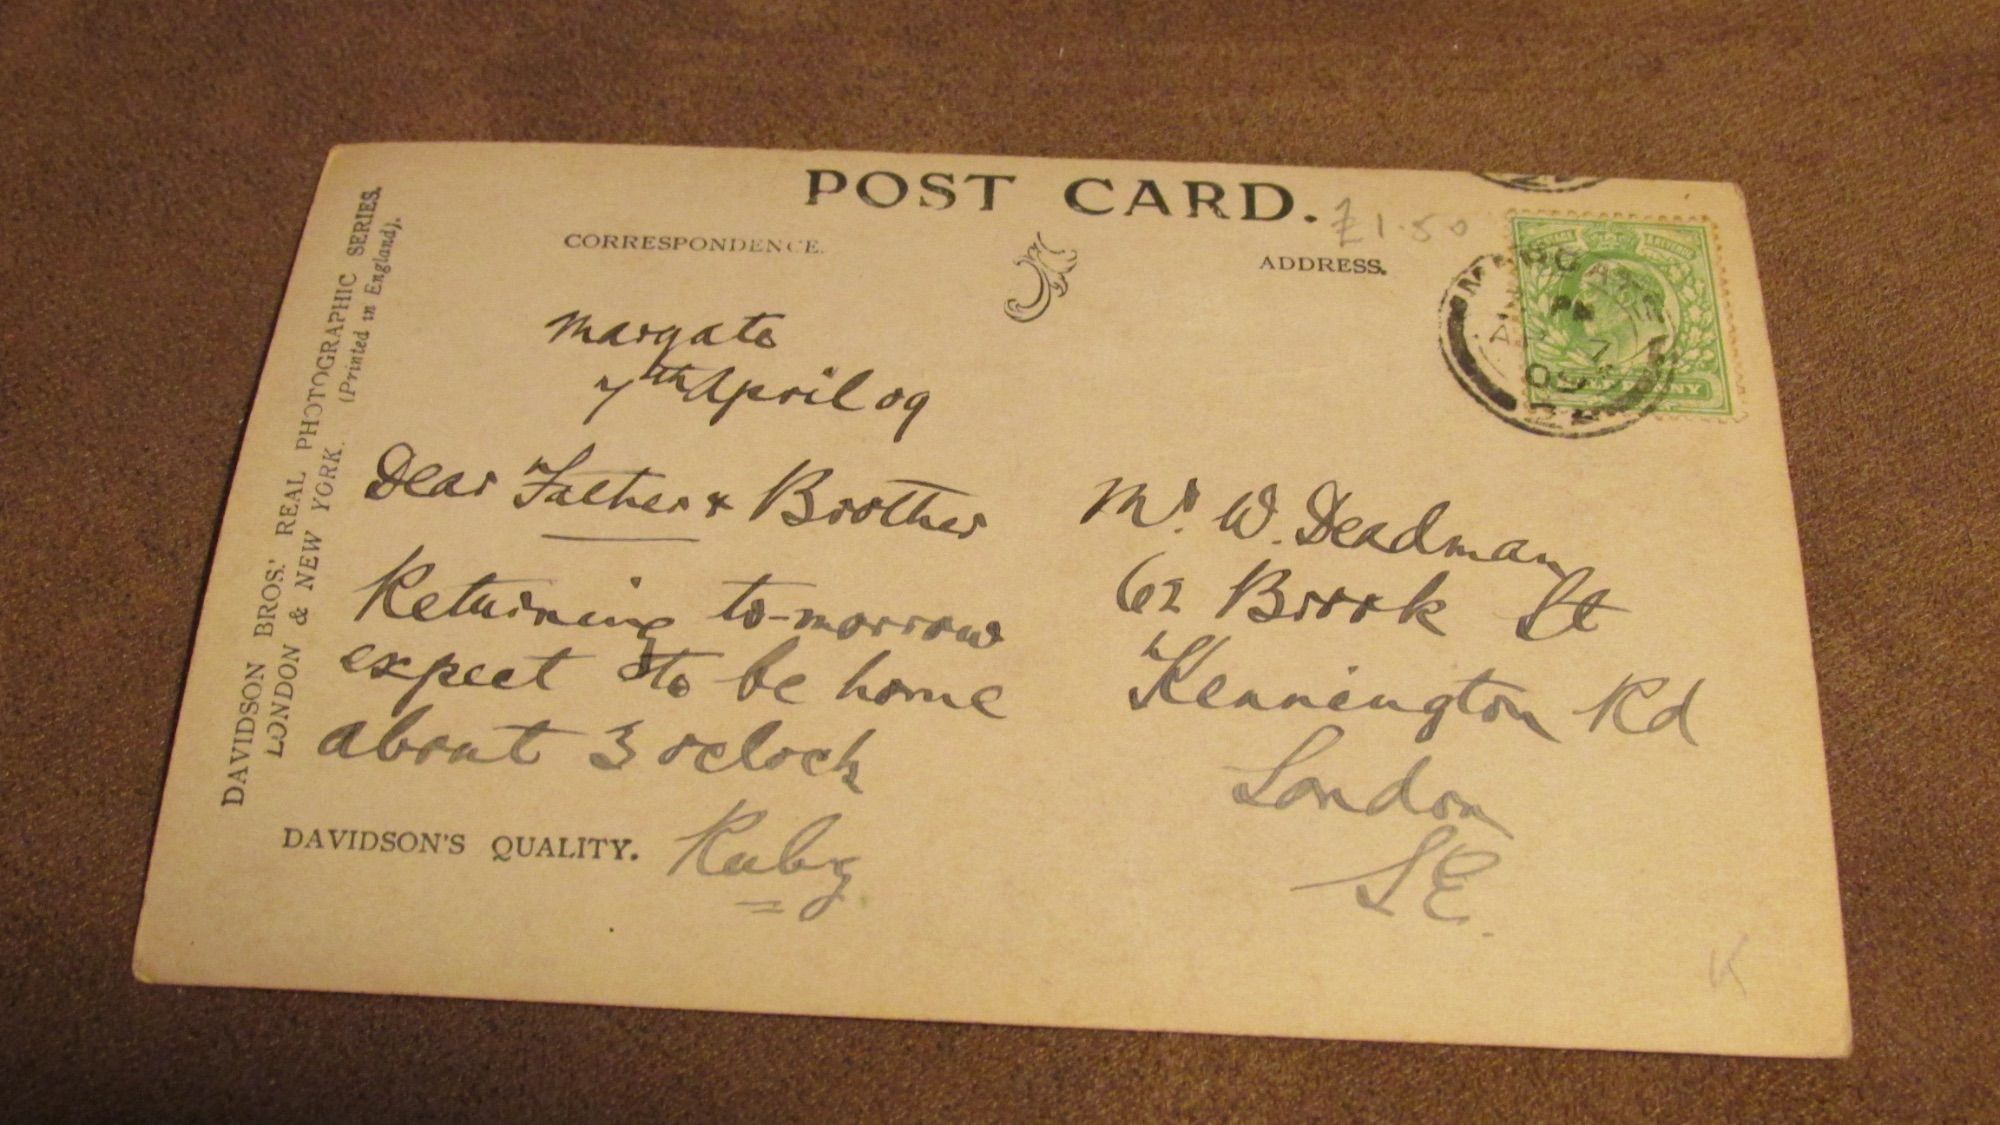 POST CARD.
£1.50
CORRESPONDENCE.
ADDRESS.
MARGATE
PM
7
09
DAVIDSON BROS.' REAL PHOTOGRAPHIC SERIES.
LONDON & NEW YORK. (Printed in England).
Margate
7th April 09
Dear Father & Brother
Returning to-morrow
expect to be home
about 3 oclock
Ruby
DAVIDSON'S QUALITY.
Mr. W. Deadman
62 Brook St
Kennington Rd
London
SE.
K